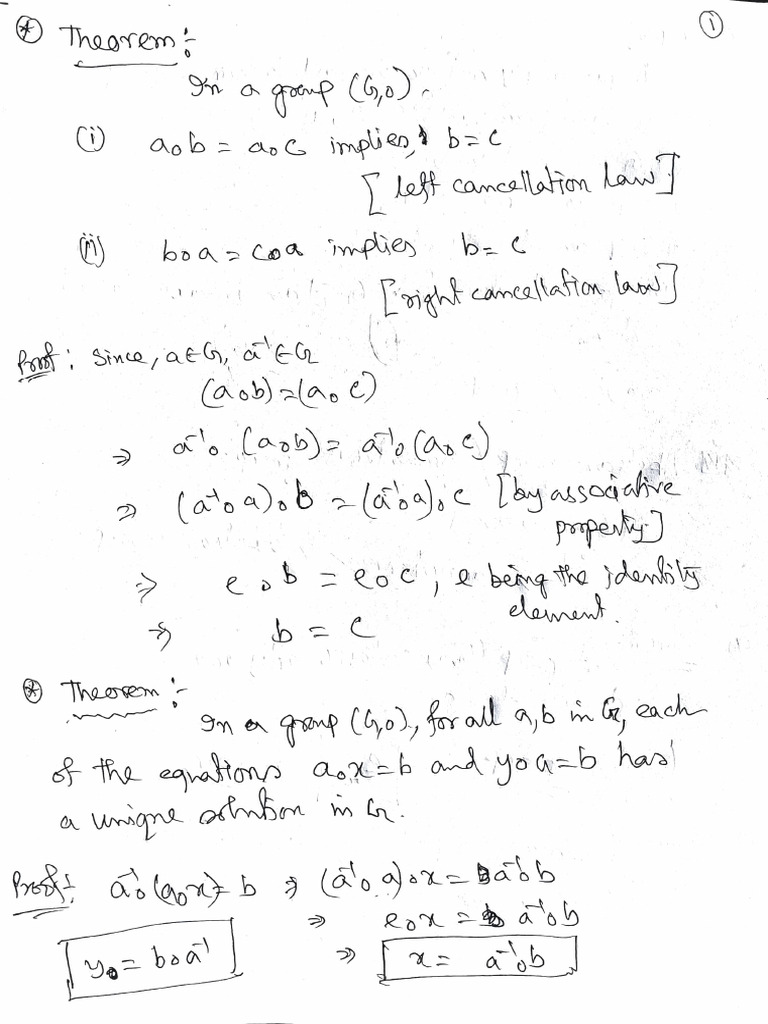 ①
⊛ Theorem :-
In a group (G,o).
(i) aob = aoc implies, b=c
[left cancellation law]
(ii) boa = coa implies b=c
[right cancellation law]
Proof: Since, a∈G, a⁻¹∈G
(aob)=(aoc)
⇒ a⁻¹o(aob) = a⁻¹o(aoc)
⇒ (a⁻¹oa)ob = (a⁻¹oa)oc [by associative
property]
⇒ eob = eoc, e being the identity
element.
⇒ b = c
⊛ Theorem :-
In a group (G,o), for all a,b in G, each
of the equations aox=b and yoa=b has
a unique solution in G.
Proof:- a⁻¹o(aox)=b ⇒ (a⁻¹oa)ox = a⁻¹ob
⇒ eox = a⁻¹ob
yo = boa⁻¹ ⇒ x = a⁻¹ob